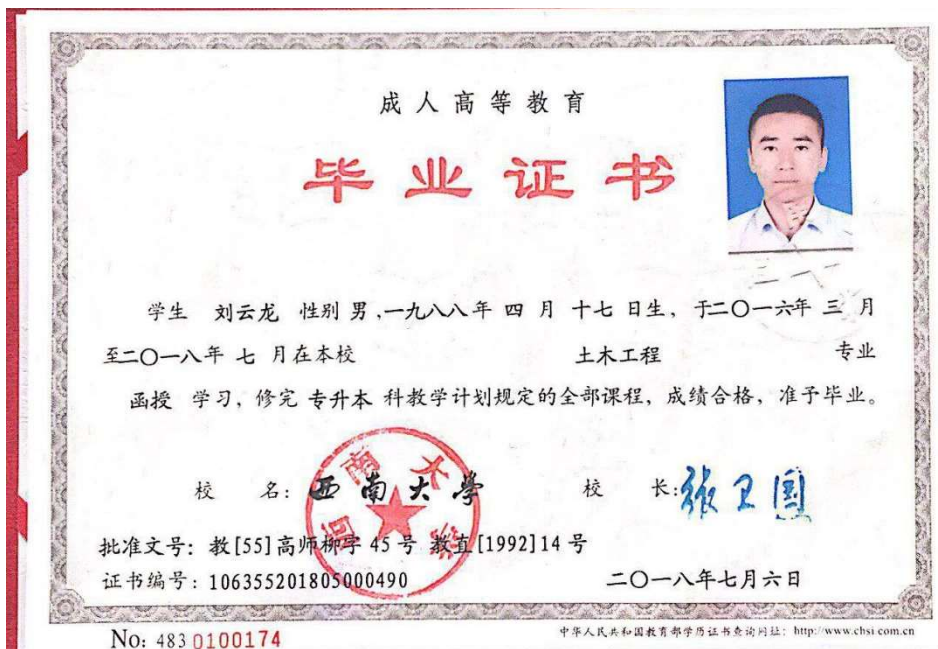 成人高等教育
毕业证书
学生 刘云龙 性别 男,一九八八年 四 月 十七 日生, 于二〇一六年 三 月
至二〇一八年 七 月在本校 土木工程 专业
函授 学习, 修完 专升本 科教学计划规定的全部课程, 成绩合格, 准予毕业。
校 名: 西南大学 校 长: 张卫国
西南大学
批准文号: 教[55]高师柳字 45 号 教直[1992]14 号
证书编号: 106355201805000490 二〇一八年七月六日
No: 483 0100174 中华人民共和国教育部学历证书查询网址: http://www.chsi.com.cn